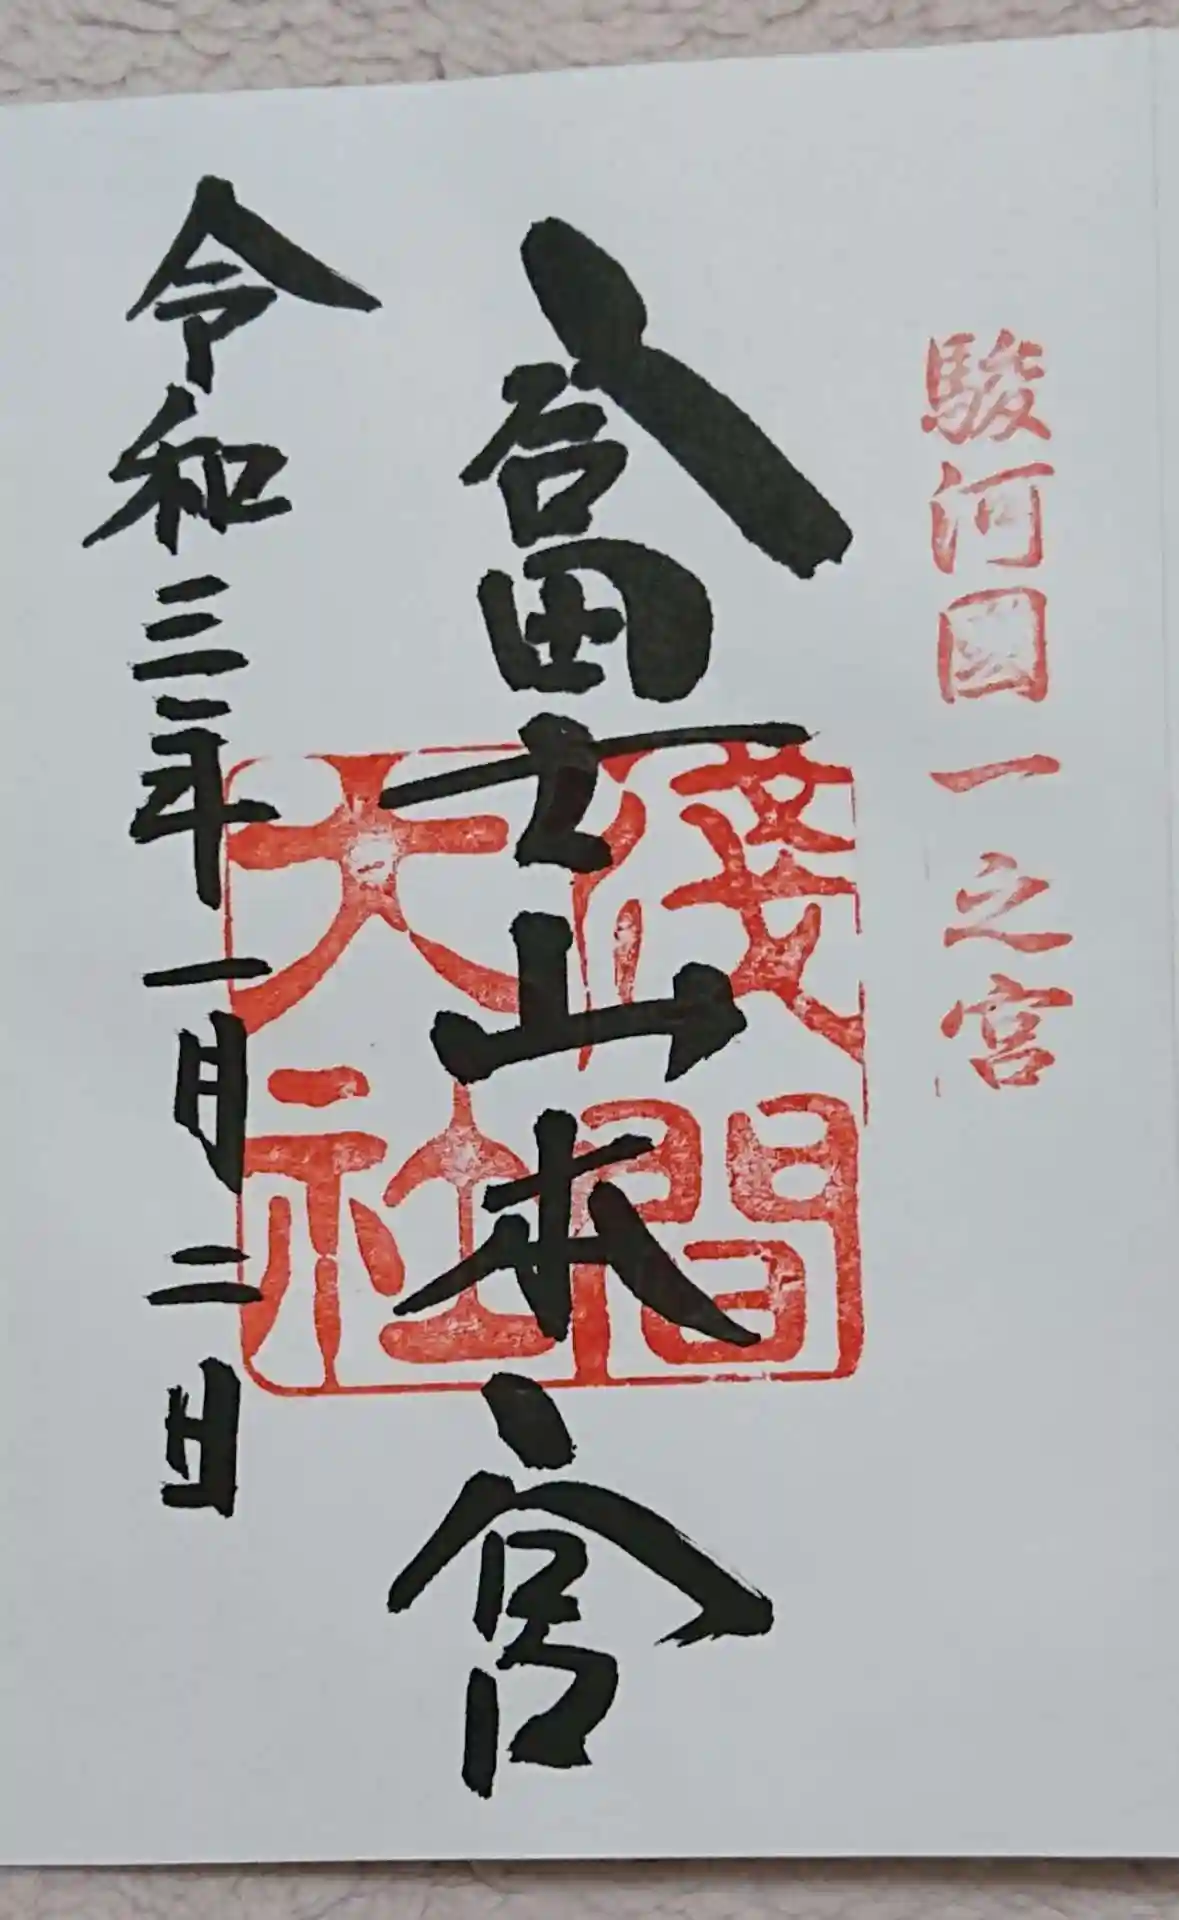 駿河國一之宮
富士山本宮
淺間大社
令和三年一月二日